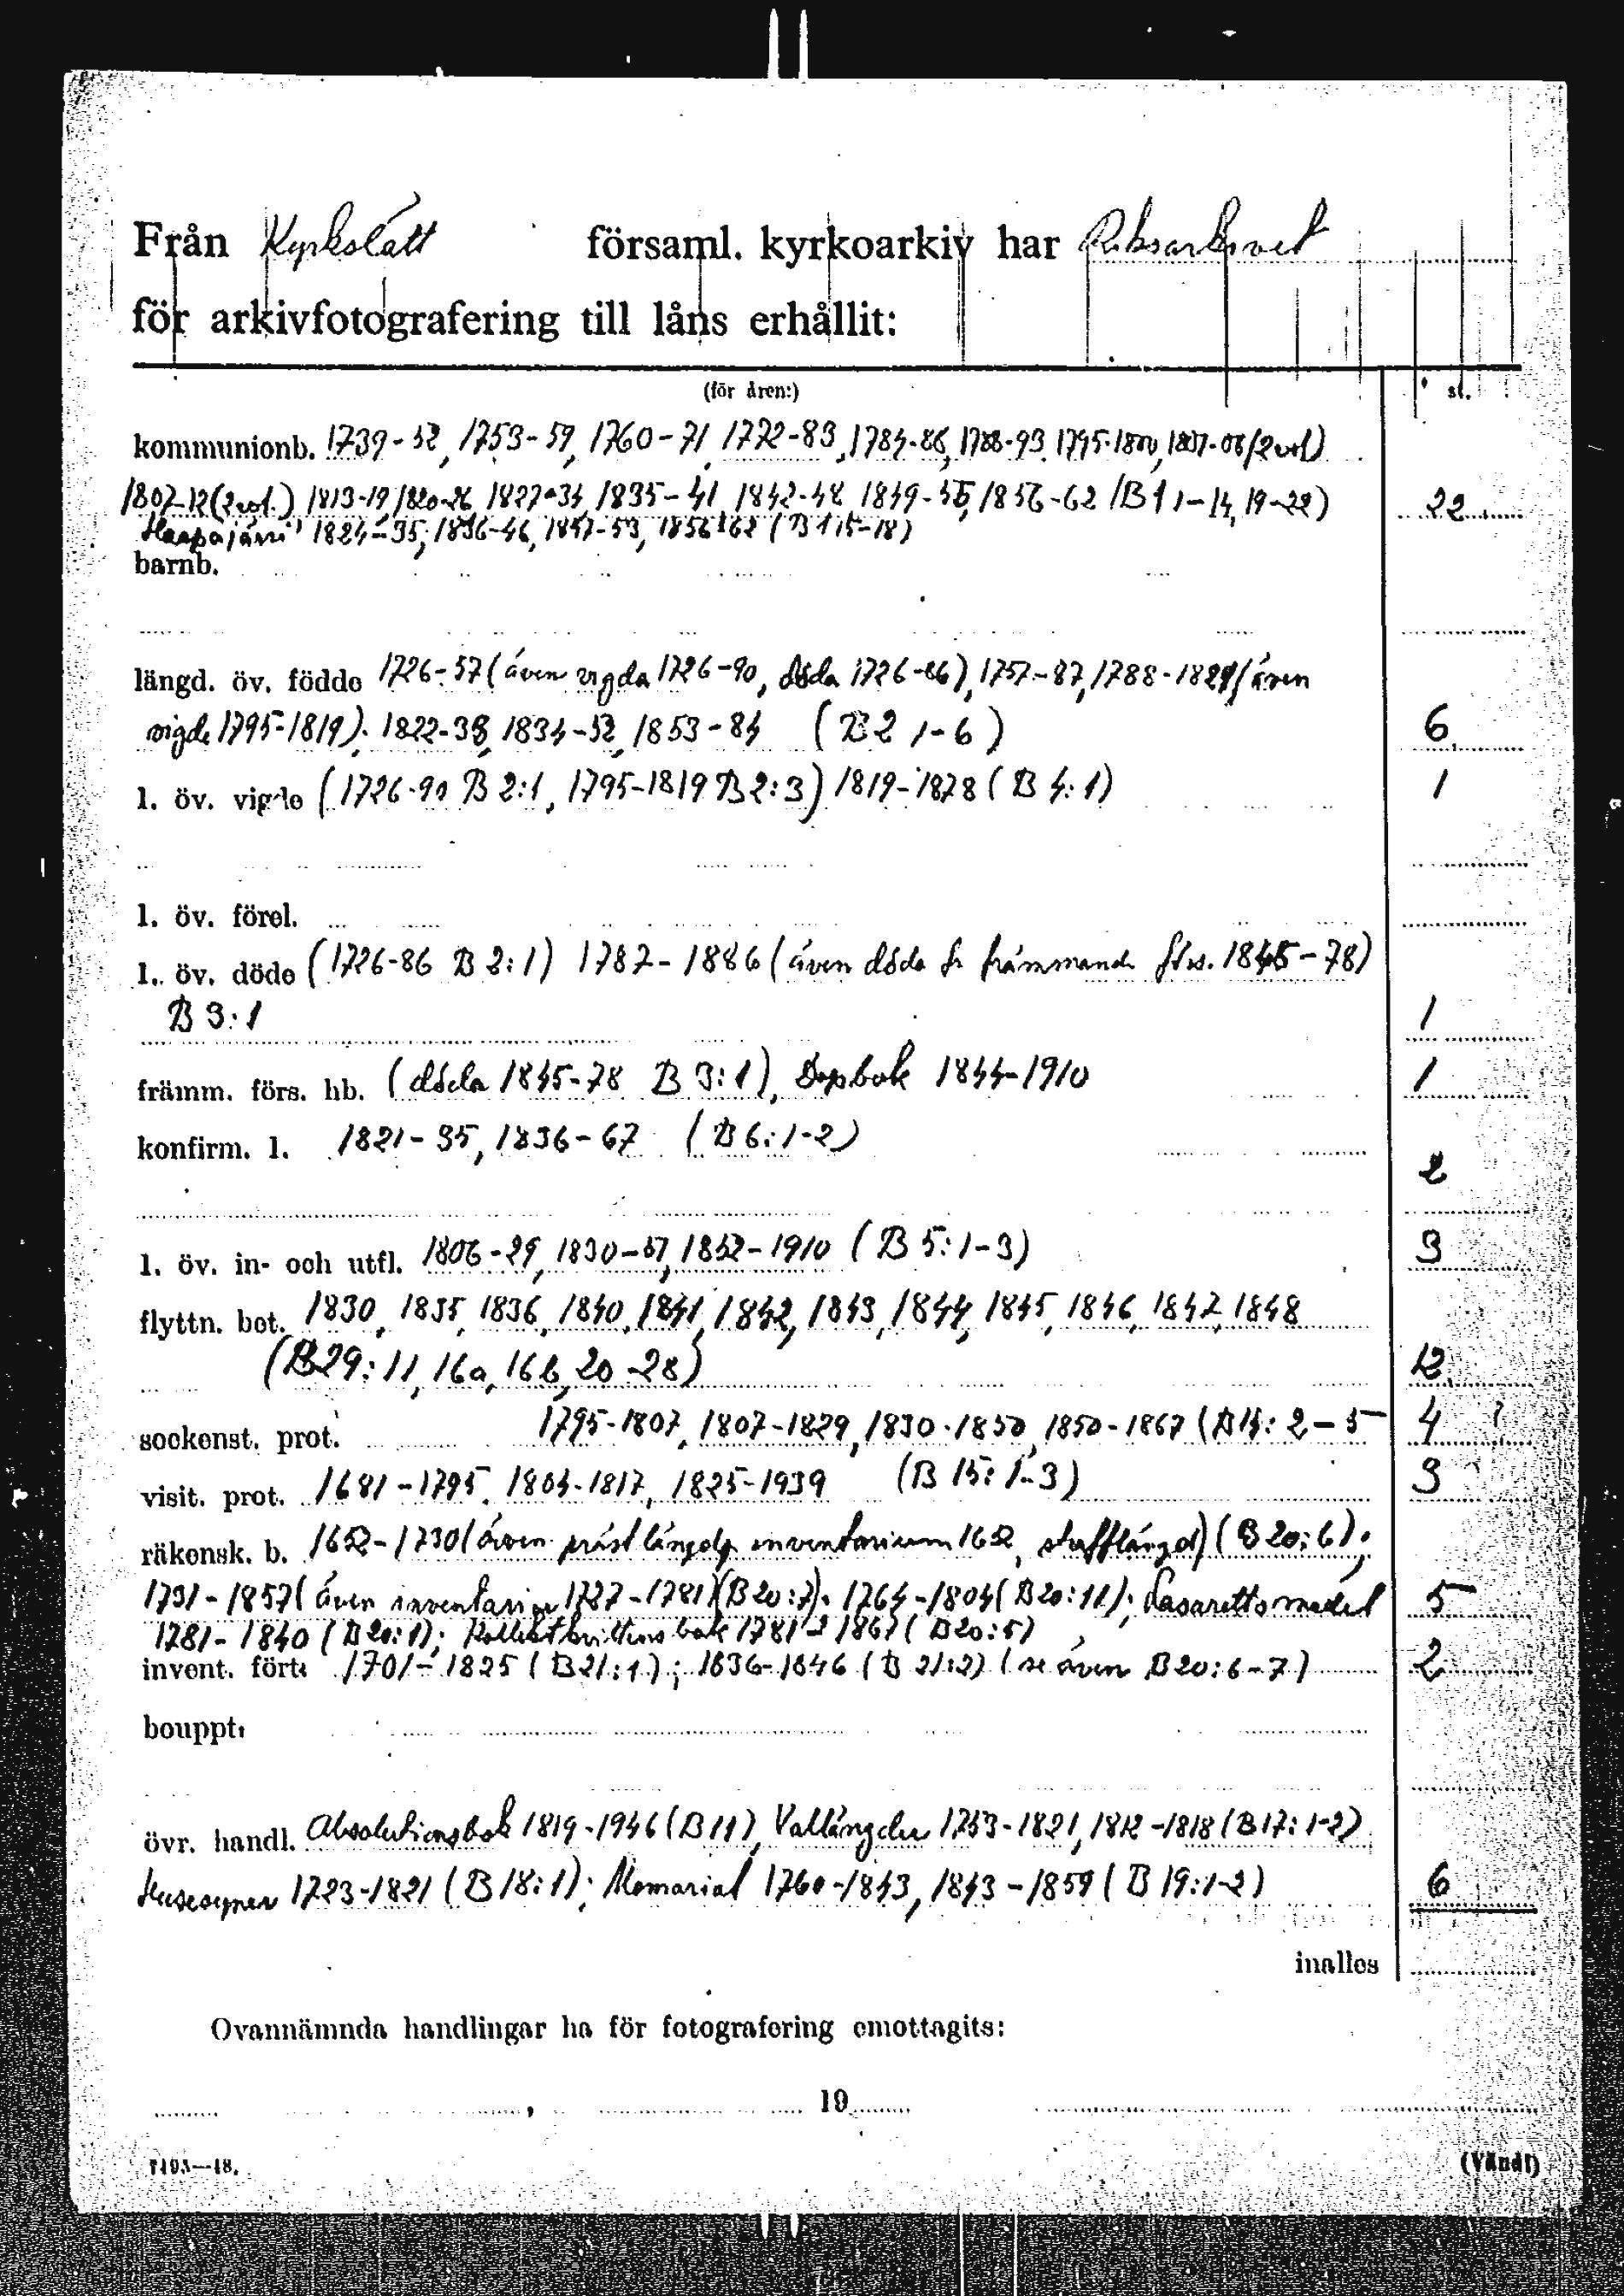 Från Kyrkslätt församl. kyrkoarkiv har Riksarkivet
för arkivfotografering till låns erhållit:
(för åren:) st.
kommunionb. 1739-52, 1753-59, 1760-71, 1772-83, 1784-86, 1788-93, 1795-1800, 1801-06 (2 vol)
1807-12 (2 vol.) 1813-19, 1820-26, 1827-34, 1835-41, 1842-48, 1849-55, 1856-62 (B 1 1-14, 19-22) 22
Haapajärvi 1824-35, 1836-46, 1847-53, 1856-62 (B 1 15-18)
barnb.
längd. öv. födde 1726-57 (även vigda 1726-90, döda 1726-86), 1757-87, 1788-1821 (även
vigde 1795-1819). 1822-38, 1834-52, 1853-84 (B 2 1-6) 6
l. öv. vigde (1726-90 B 2:1, 1795-1819 B 2:3) 1819-1878 (B 4:1) 1
l. öv. förel.
l. öv. döde (1726-86 B 2:1) 1787-1886 (även döda fr främmande förs. 1845-78)
B 3:1 1
främm. förs. hb. (döda 1845-78 B 3:1), Dopbok 1844-1910 1
konfirm. l. 1821-35, 1836-67 (B 6:1-2) 2
l. öv. in- och utfl. 1806-29, 1830-51, 1852-1910 (B 5:1-3) 3
flyttn. bet. 1830, 1835, 1836, 1840, 1841, 1842, 1843, 1844, 1845, 1846, 1847, 1848
(B29: 11, 16a, 16b, 20-28) 12
sockenst. prot. 1795-1807, 1807-1829, 1830-1850, 1850-1867 (B 14: 2-5 4
visit. prot. 1681-1795, 1804-1817, 1825-1939 (B 15: 1-3) 3
räkensk. b. 1652-1730 (även inventarium 1652, ) (B 20:6);
1731-1857 (även inventarier 1727-1781) (B20:7). 1764-1804 (B20:11); Lasarettsmedel 5
1781-1840 (B 20:1); bok 1781-1867 (B20:5)
invent. fört: 1701-1825 (B21:1); 1836-1846 (B 21:2) (se även B 20:6-7) 2
bouppt:
övr. handl. Absolutionsbok 1819-1946 (B 11), Vallängder 1753-1821, 1812-1818 (B 17: 1-2)
Husesyner 1723-1821 (B 18:1); Memorial 1760-1843, 1843-1859 (B 19:1-2) 6
inalles
Ovannämnda handlingar ha för fotografering emottagits:
, 19
7493—48. (Vänd!)